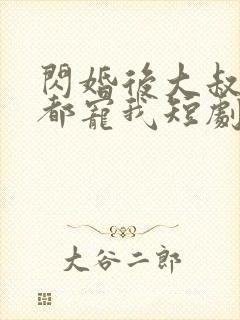 閃婚後大叔
都寵我短劇
大谷二郎